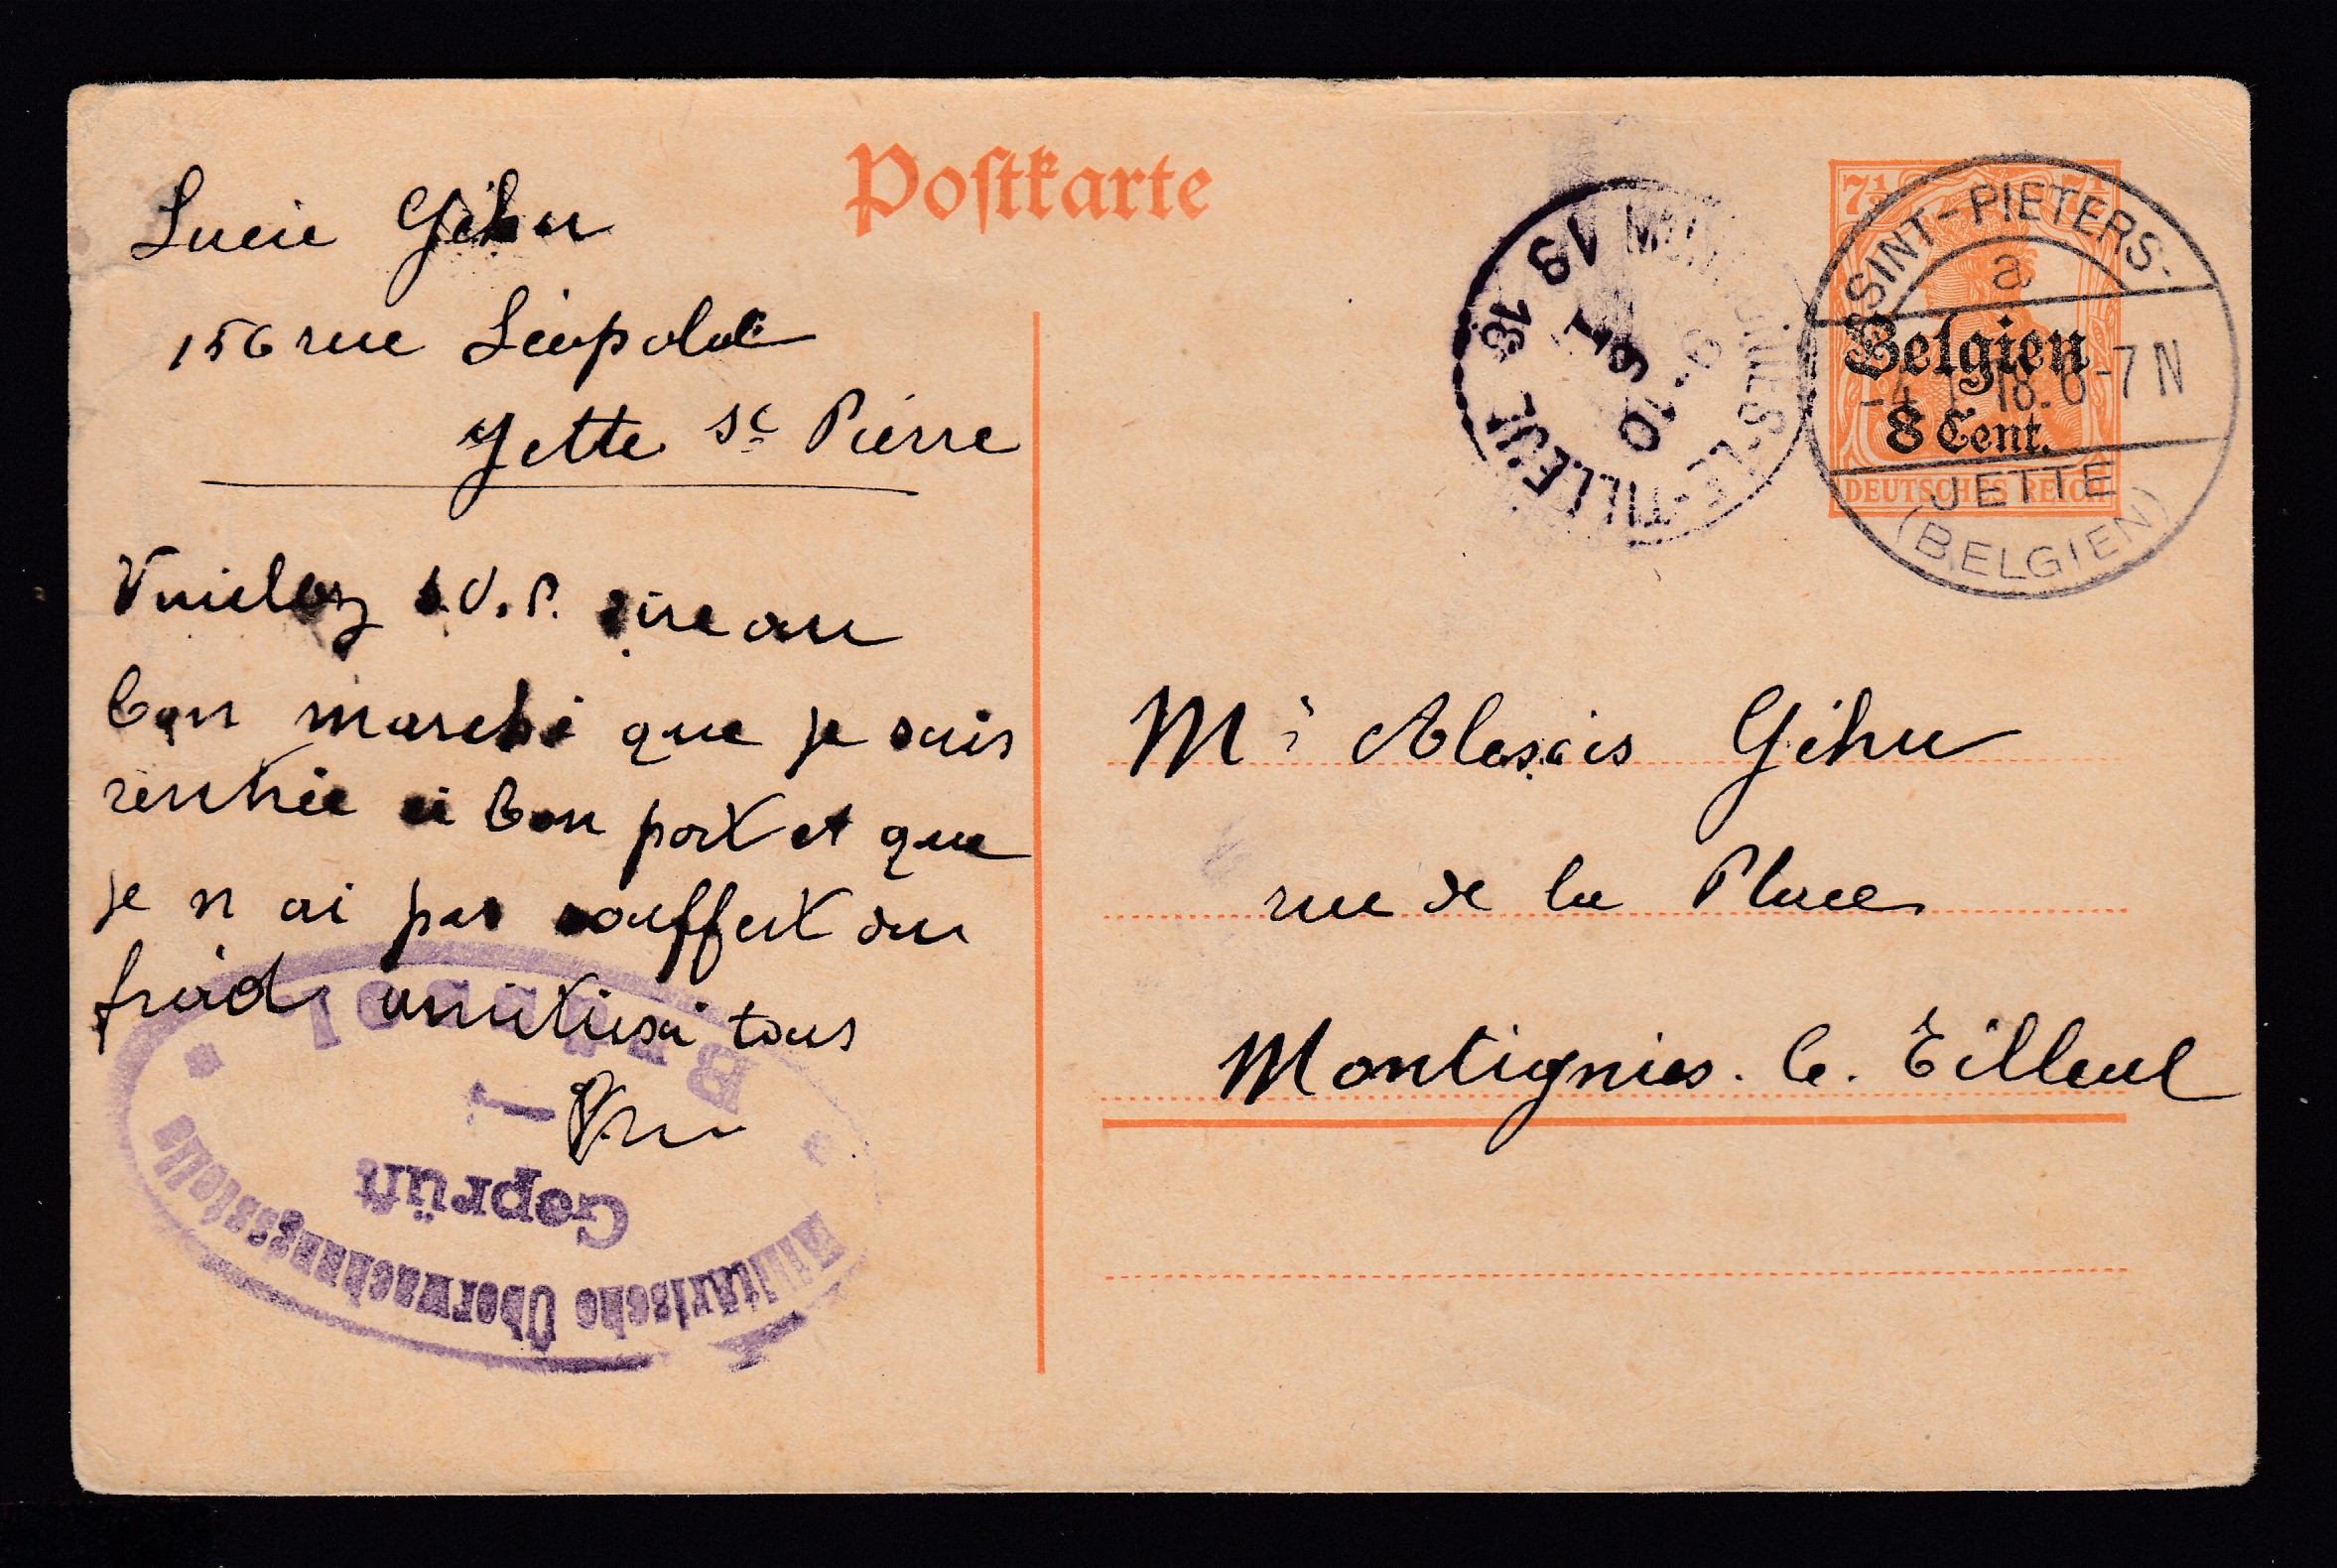 Postkarte
Lucie Géhu
156 rue Léopold
Jette St Pierre
Veuillez s.V.P. dire au
bon marché que je suis
rentrée à bon port et que
je n ai pas souffert du
froid, amitiés à tous
7½ 7½
Belgien
8 Cent.
DEUTSCHES REICH
SINT-PIETERS-
a
-4 1 18. 6-7 N
JETTE
(BELGIEN)
MONTIGNIES-LE-TILLEUL
18 18
9-10
Mr Alexis Géhu
rue de la Place
Montignies. le. Tilleul
Brüssel
1
Geprüft
Militärische Überwachungsstelle